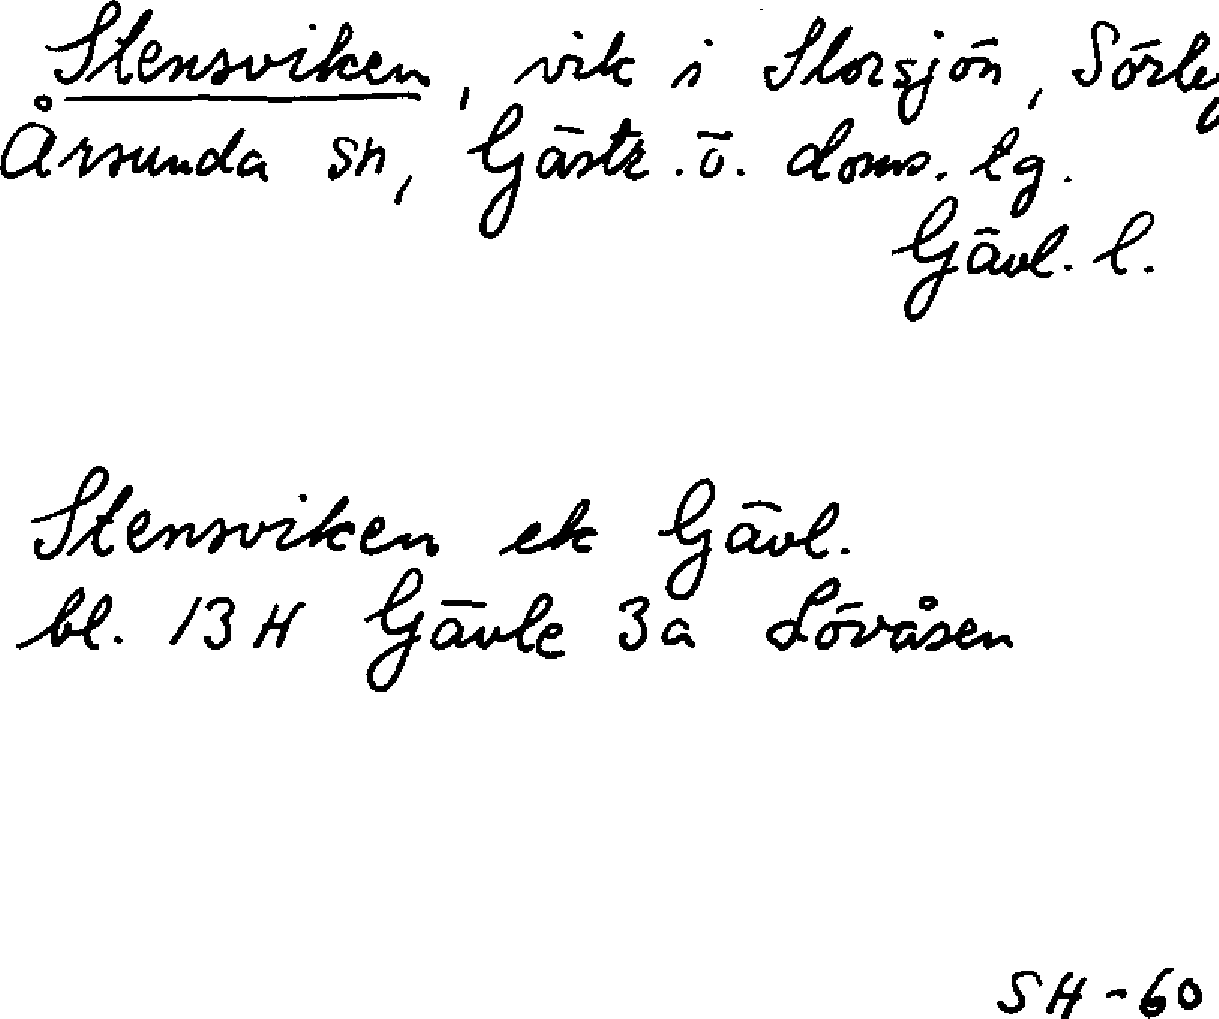 Stensviken, vik i Storsjön, Sörby
Årsunda sn, Gästr. ö. doms. lg.
Gävl. l.
Stensviken ek Gävl.
bl. 13H Gävle 3a Lövåsen
SH-60